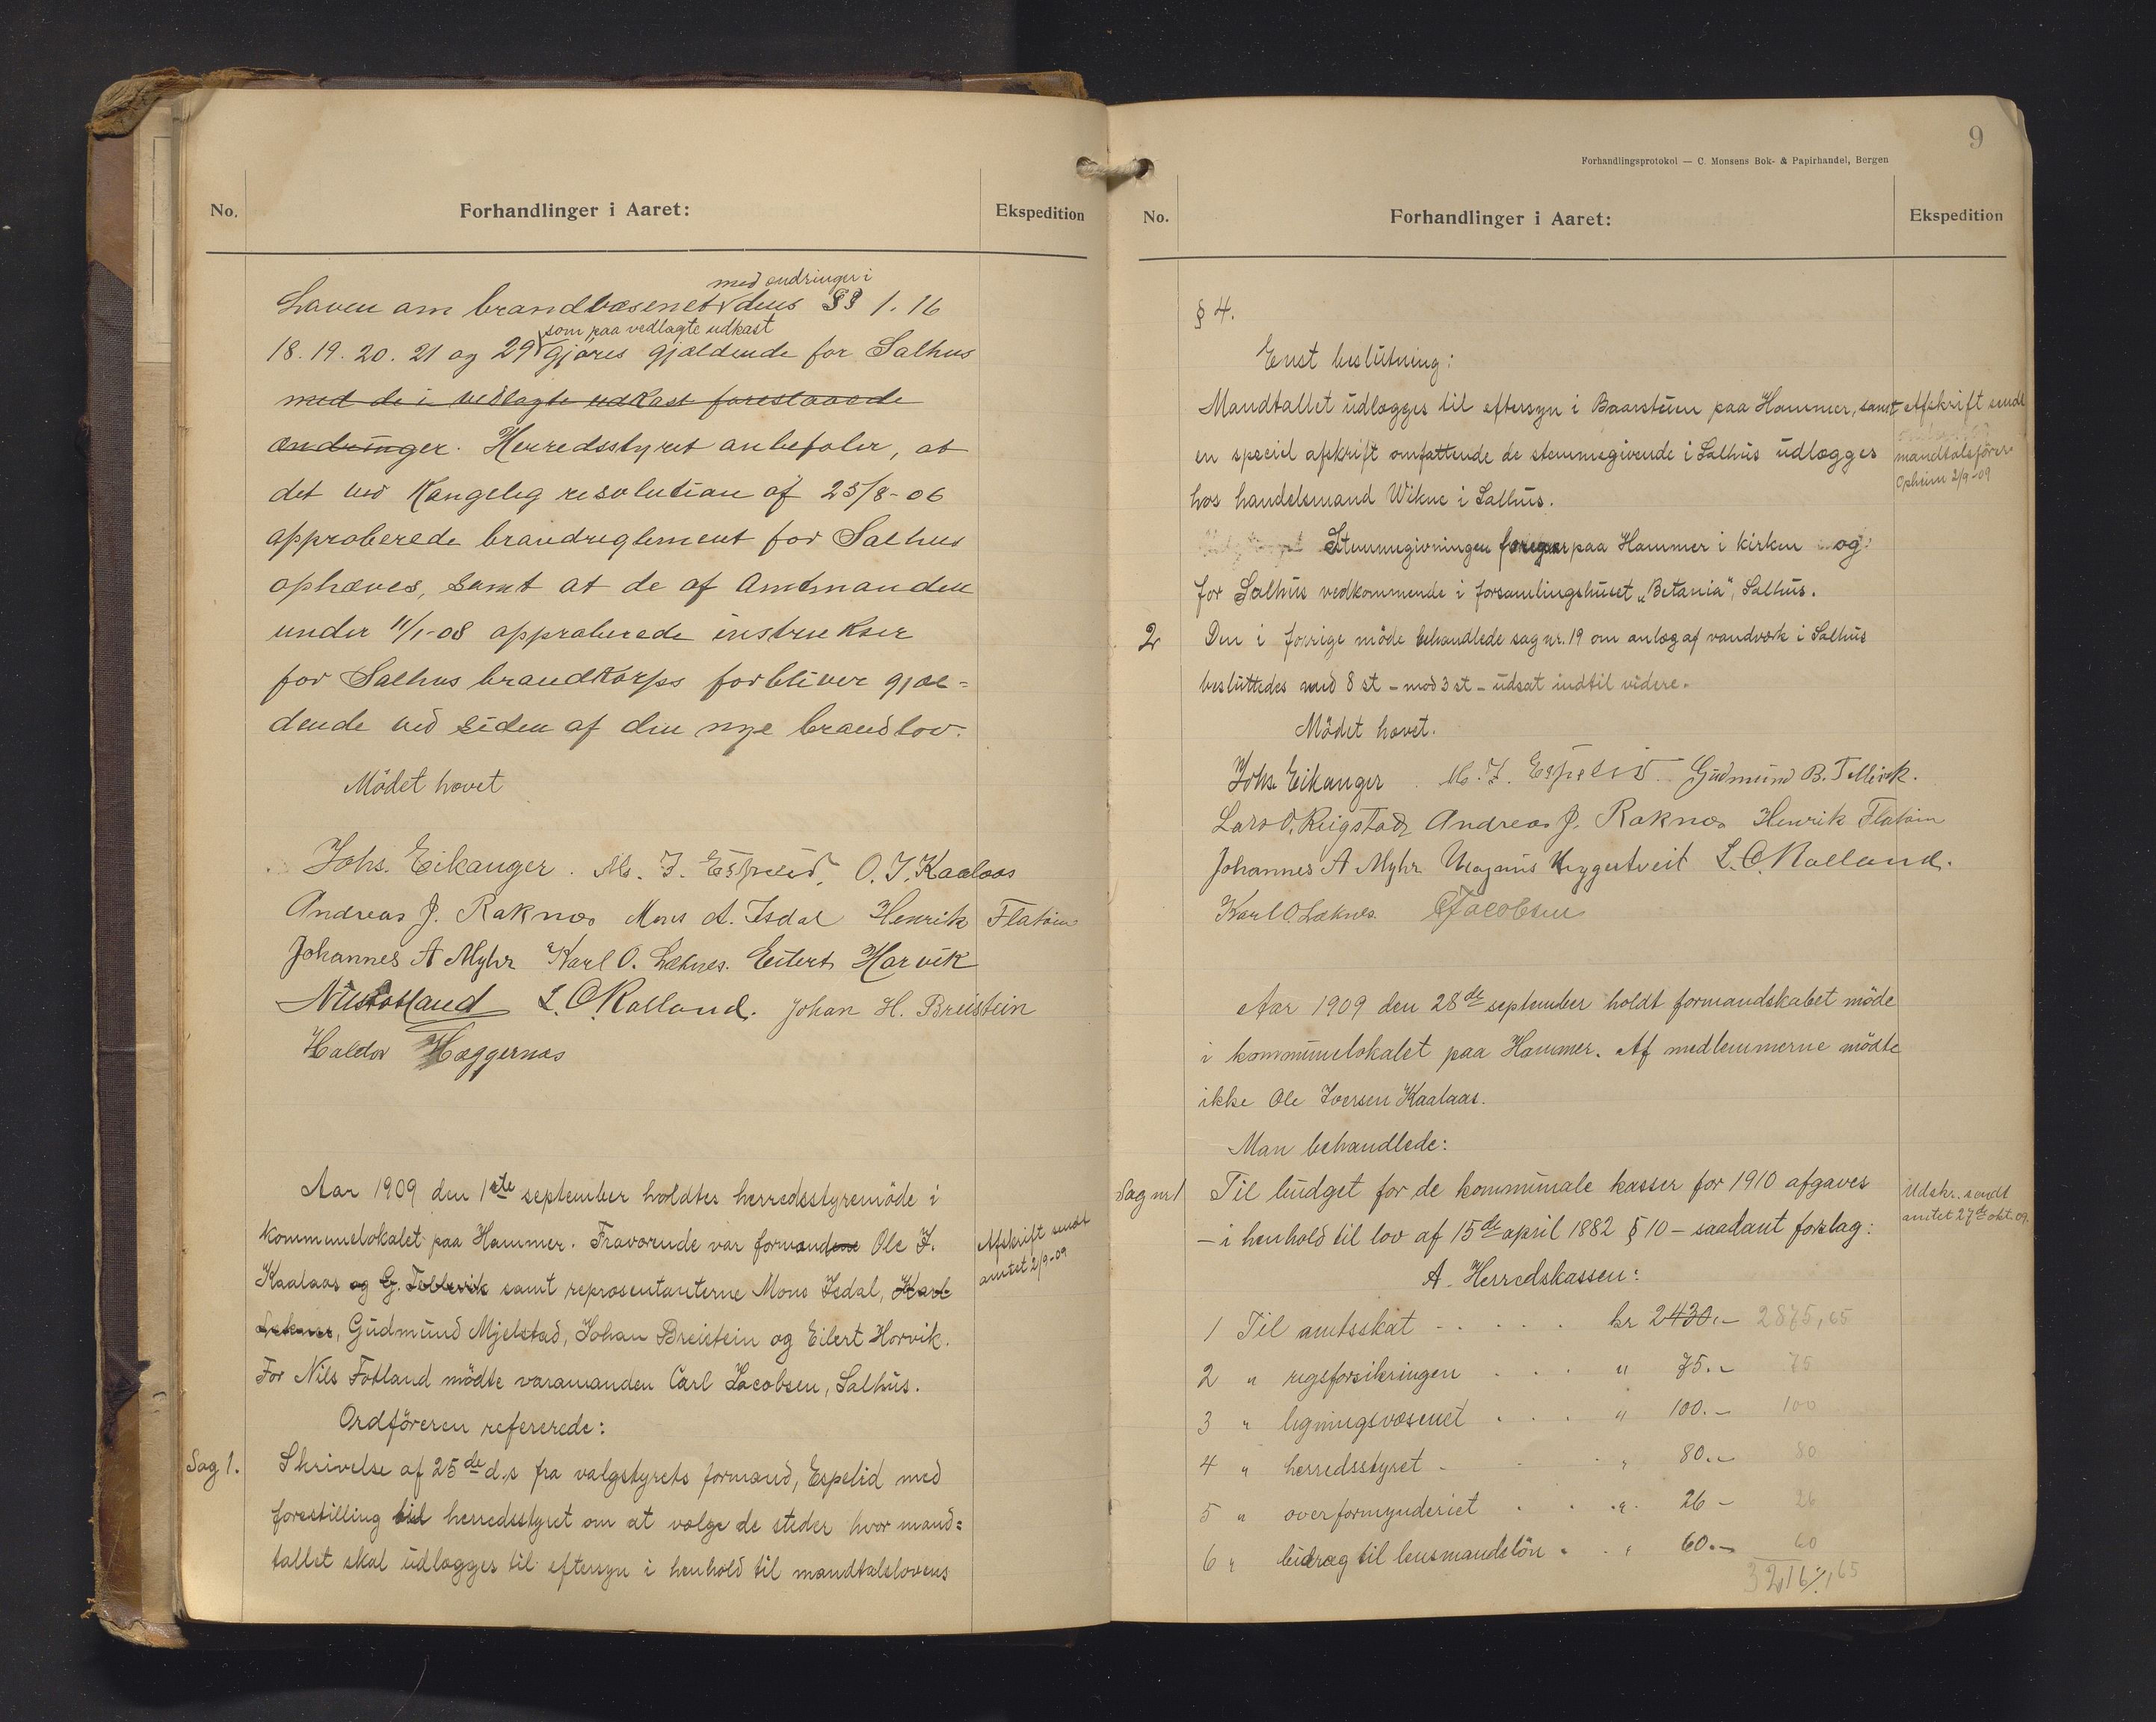 No.
Forhandlinger i Aaret:
Ekspedition
med ændringer i
Loven om brandvæsenet dens §§ 1. 16
som paa vedlagte udkast
18. 19. 20. 21 og 29 gjøres gjældende for Salhus
med de i vedlagte udkast forestaaede
ændringer. Herredsstyret anbefaler, at
det ved Kongelig resolution af 25/8-06
approberede brandreglement for Salhus
ophæves, samt at de af Amtmanden
under 11/1-08 approberede instrukser
for Salhus brandkorps forbliver gjæl=
dende ved siden af den nye brandlov.
Mödet hævet
Johs. Eikanger. M. J. Espelid. O. J. Kaalaas
Andreas J. Raknes Mons A. Isdal Henrik Flatöin
Johannes A Myhr Karl O. Læknes. Eilert Horvik
Nils Fotland L. O. Rolland. Johan H. Breistein
Haldor Hæggernæs
Aar 1909 den 1ste september holdtes herredsstyremöde i
kommunelokalet paa Hammer. Fraværende var formændene Ole I.
Kaalaas og G. Tellevik samt repræsentanterne Mons Isdal, Karl
Læknes, Gudmund Mjelstad, Johan Breistein og Eilert Horvik.
For Nils Fotland mödte varamanden Carl Jacobsen, Salhus.
Afskrift sendt
amtet 2/9-09
Ordföreren refererede:
Sag 1.
Skrivelse af 25de d.s fra valgstyrets formand, Espelid med
forestilling til herredsstyret om at vælge de steder hvor mand=
tallet skal udlægges til eftersyn i henhold til mandtalslovens
9
Forhandlingsprotokol — C. Monsens Bok- & Papirhandel, Bergen
No.
Forhandlinger i Aaret:
Ekspedition
§ 4.
Enst beslutning:
Mandtallet udlægges til eftersyn i Baarstuen paa Hammer, samt
en speciel afskrift omfattende de stemmegivende i Salhus udlægges
hos handelsmand Wikne i Salhus.
Afskrift sendt
mandtalsförer
Opheim 2/9-09
Stemmegivningen foregaar paa Hammer i kirken og
for Salhus vedkommende i forsamlingshuset „Betania", Salhus.
2
Den i forrige möde behandlede sag nr. 19 om anlæg af vandværk i Salhus
besluttedes med 8 st - mod 3 st - udsat indtil videre.
Mödet hævet.
Johs. Eikanger. M. J. Espelid. Gudmund B. Tellevik.
Lars O. Reigstad Andreas J. Raknes Henrik Flatöin
Johannes A Myhr Magnus Hyggertveit L. O. Rolland.
Karl O. Læknes. C Jacobsen
Aar 1909 den 28de september holdt formandskabet möde
i kommunelokalet paa Hammer. Af medlemmerne mödte
ikke Ole Iversen Kaalaas.
Man behandlede:
Sag nr 1
Til budget for de kommunale kasser for 1910 afgaves
- i henhold til lov af 15de april 1882 § 10 - saadant forslag:
Udskr. sendt
amtet 27de okt 09.
A. Herredskassen:
1 Til amtsskat - . . . . kr 2430.- 2875,65
2 " regsforsikringen . . " 75.- 75
3 " ligningsvæsenet . . . " 100.- 100
4 " herredsstyret - . . " 80.- 80
5 " overformynderiet . . . " 26 - 26
6 " bidrag til lensmandslön . . " 60.- 60
3216,65